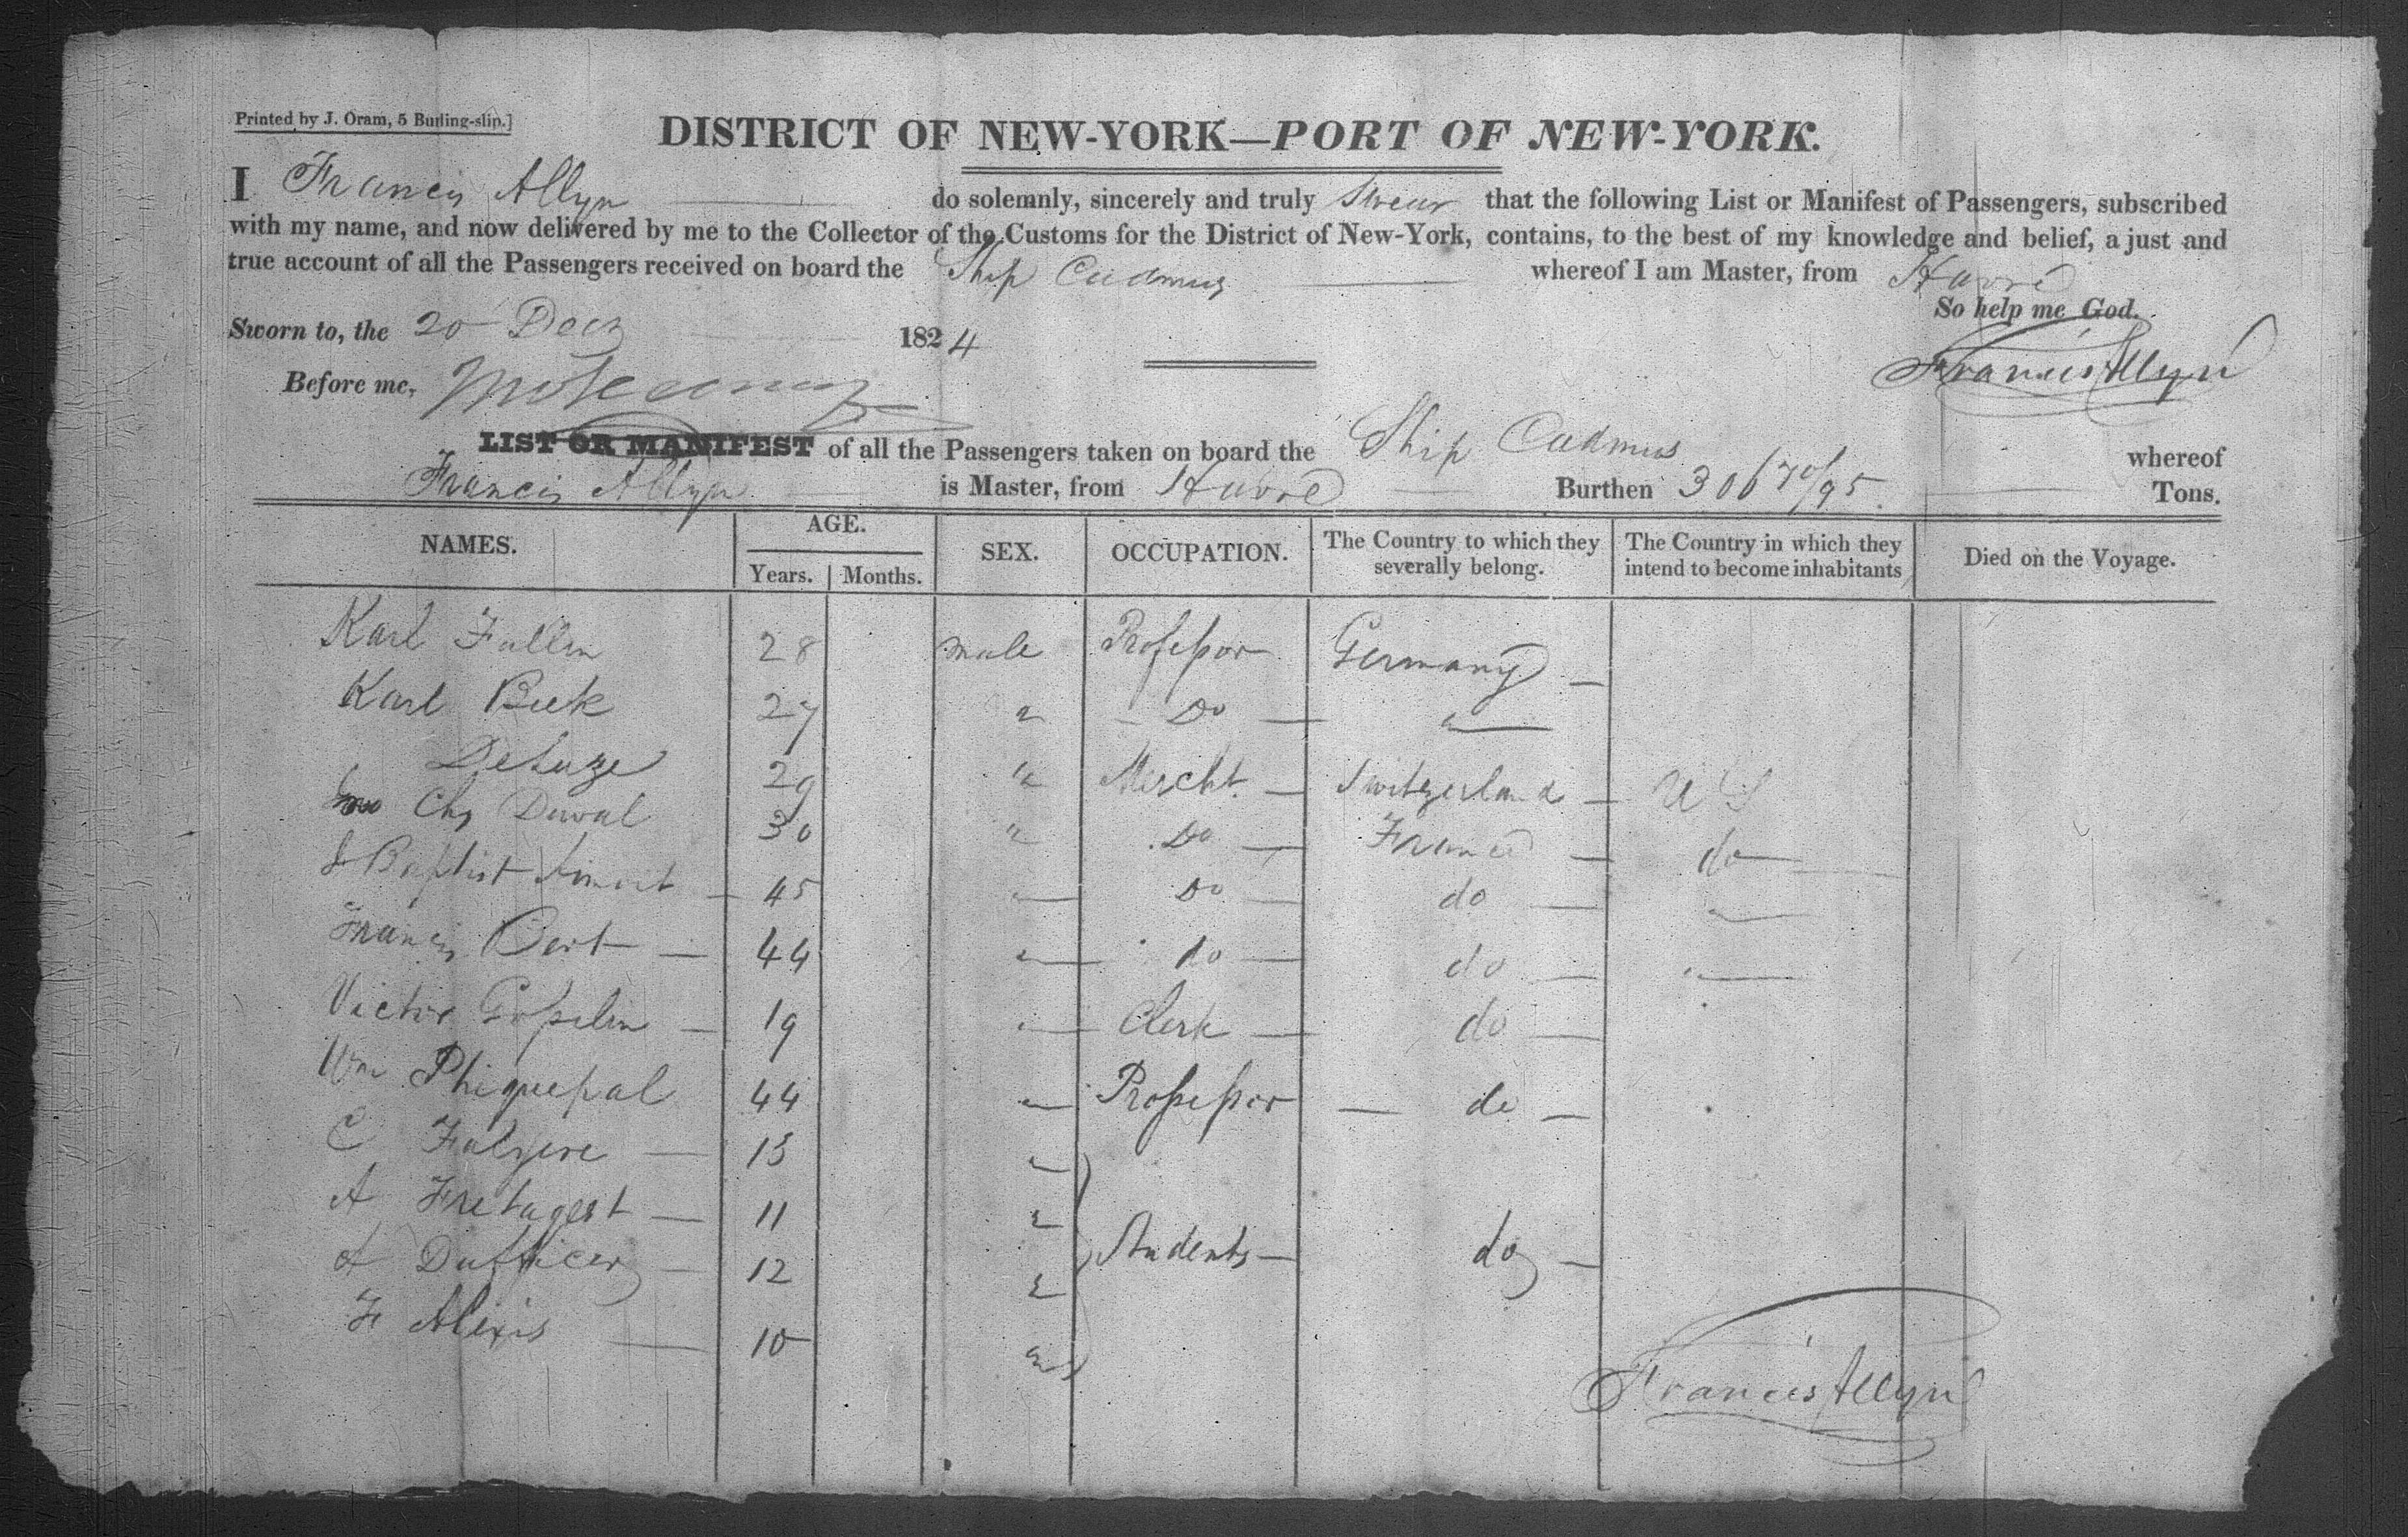 Printed by J. Oram, 5 Burling-slip.]
DISTRICT OF NEW-YORK—PORT OF NEW-YORK.
I Francis Allyn do solemnly, sincerely and truly Swear that the following List or Manifest of Passengers, subscribed
with my name, and now delivered by me to the Collector of the Customs for the District of New-York, contains, to the best of my knowledge and belief, a just and
true account of all the Passengers received on board the Ship Cadmus whereof I am Master, from Havre
So help me God.
Sworn to, the 20 Decr 1824
Francis Allyn
Before me,
LIST OR MANIFEST of all the Passengers taken on board the Ship Cadmus whereof
Francis Allyn is Master, from Havre Burthen 306 70/95 Tons.
NAMES. AGE. Years. Months. SEX. OCCUPATION. The Country to which they severally belong. The Country in which they intend to become inhabitants Died on the Voyage.
Karl Follen 28 male Professor Germany —
Karl Beck 27 " Do — "
DeLuze 29 " Mercht. — Switzerland — U S
Chs Duval 30 " Do — France — do
J Baptist — 45 " Do — do — "
Francis Bert — 44 " do — do — "
Victor Gosselin — 19 " Clerk — do —
Wm Phiquepal 44 " Professor — do —
C Falgere — 13 "
A Fretagest — 11 "
A Dufficer — 12 " Students — do —
F Alexis — 10 "
Francis Allyn